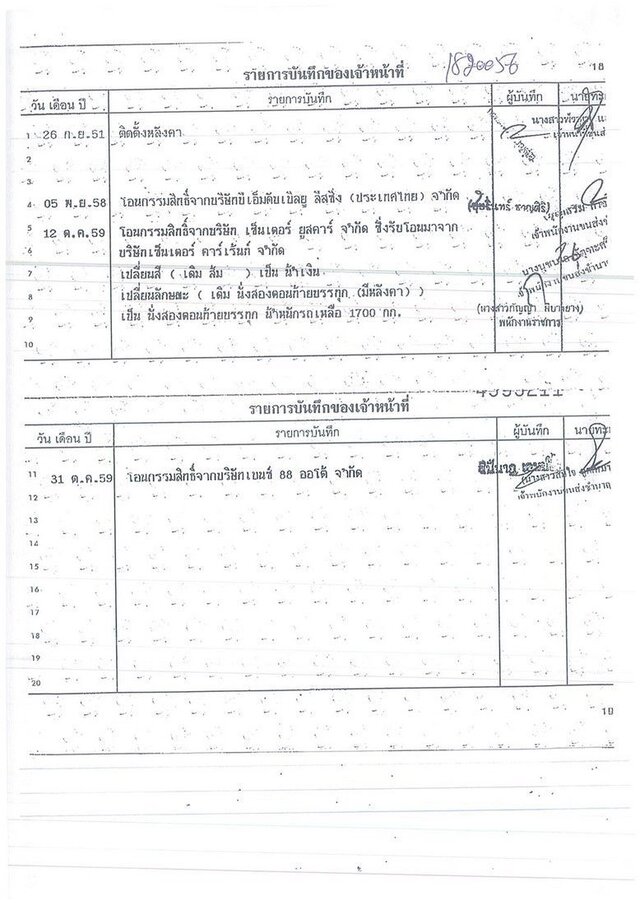 รายการบันทึกของเจ้าหน้าที่ 1820056 18
วัน เดือน ปี รายการบันทึก ผู้บันทึก
1 26 ก.ย.51 ติดตั้งหลังคา
2
4 05 พ.ย.58 โอนกรรมสิทธิ์จากบริษัทบีเอ็มดับเบิลยู ลีสซิ่ง (ประเทศไทย) จำกัด
5 12 ต.ค.59 โอนกรรมสิทธิ์จากบริษัท เซ็นเตอร์ ยูสคาร์ จำกัด ซึ่งรับโอนมาจาก
6 บริษัทเซ็นเตอร์ คาร์เร้นท์ จำกัด
7 เปลี่ยนสี ( เดิม ส้ม ) เป็น น้ำเงิน
8 เปลี่ยนลักษณะ ( เดิม นั่งสองตอนท้ายบรรทุก (มีหลังคา) )
9 เป็น นั่งสองตอนท้ายบรรทุก น้ำหนักรถเหลือ 1700 กก.
พนักงานราชการ
10
รายการบันทึกของเจ้าหน้าที่
วัน เดือน ปี รายการบันทึก ผู้บันทึก
11 31 ต.ค.59 โอนกรรมสิทธิ์จากบริษัทเบนซ์ 88 ออโต้ จำกัด
12
13
14
15
16
17
18
19
20
19